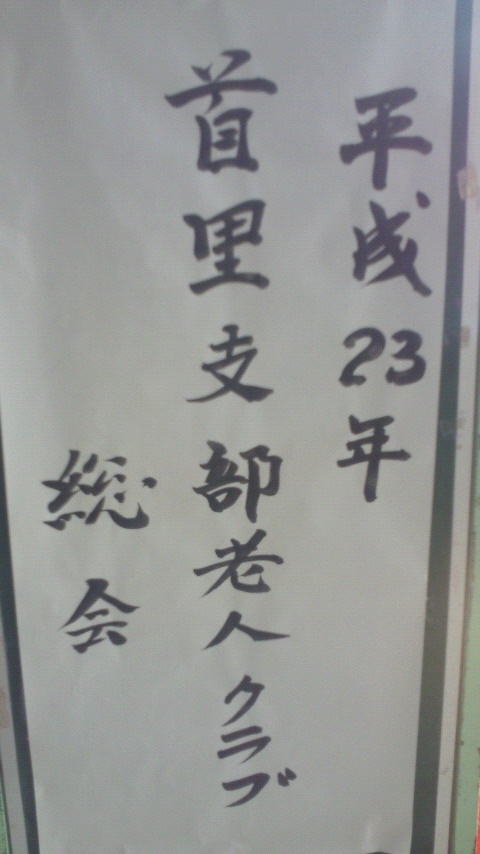 平成23年
首里支部老人クラブ
総会